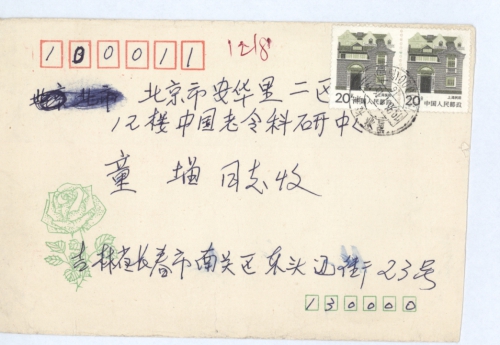 100011
1218
北京市安华里二区
12楼中国老令科研中
童 同志收
吉林省长春市南关区东头道街23号
130000
20分 中国人民邮政
20分 中国人民邮政